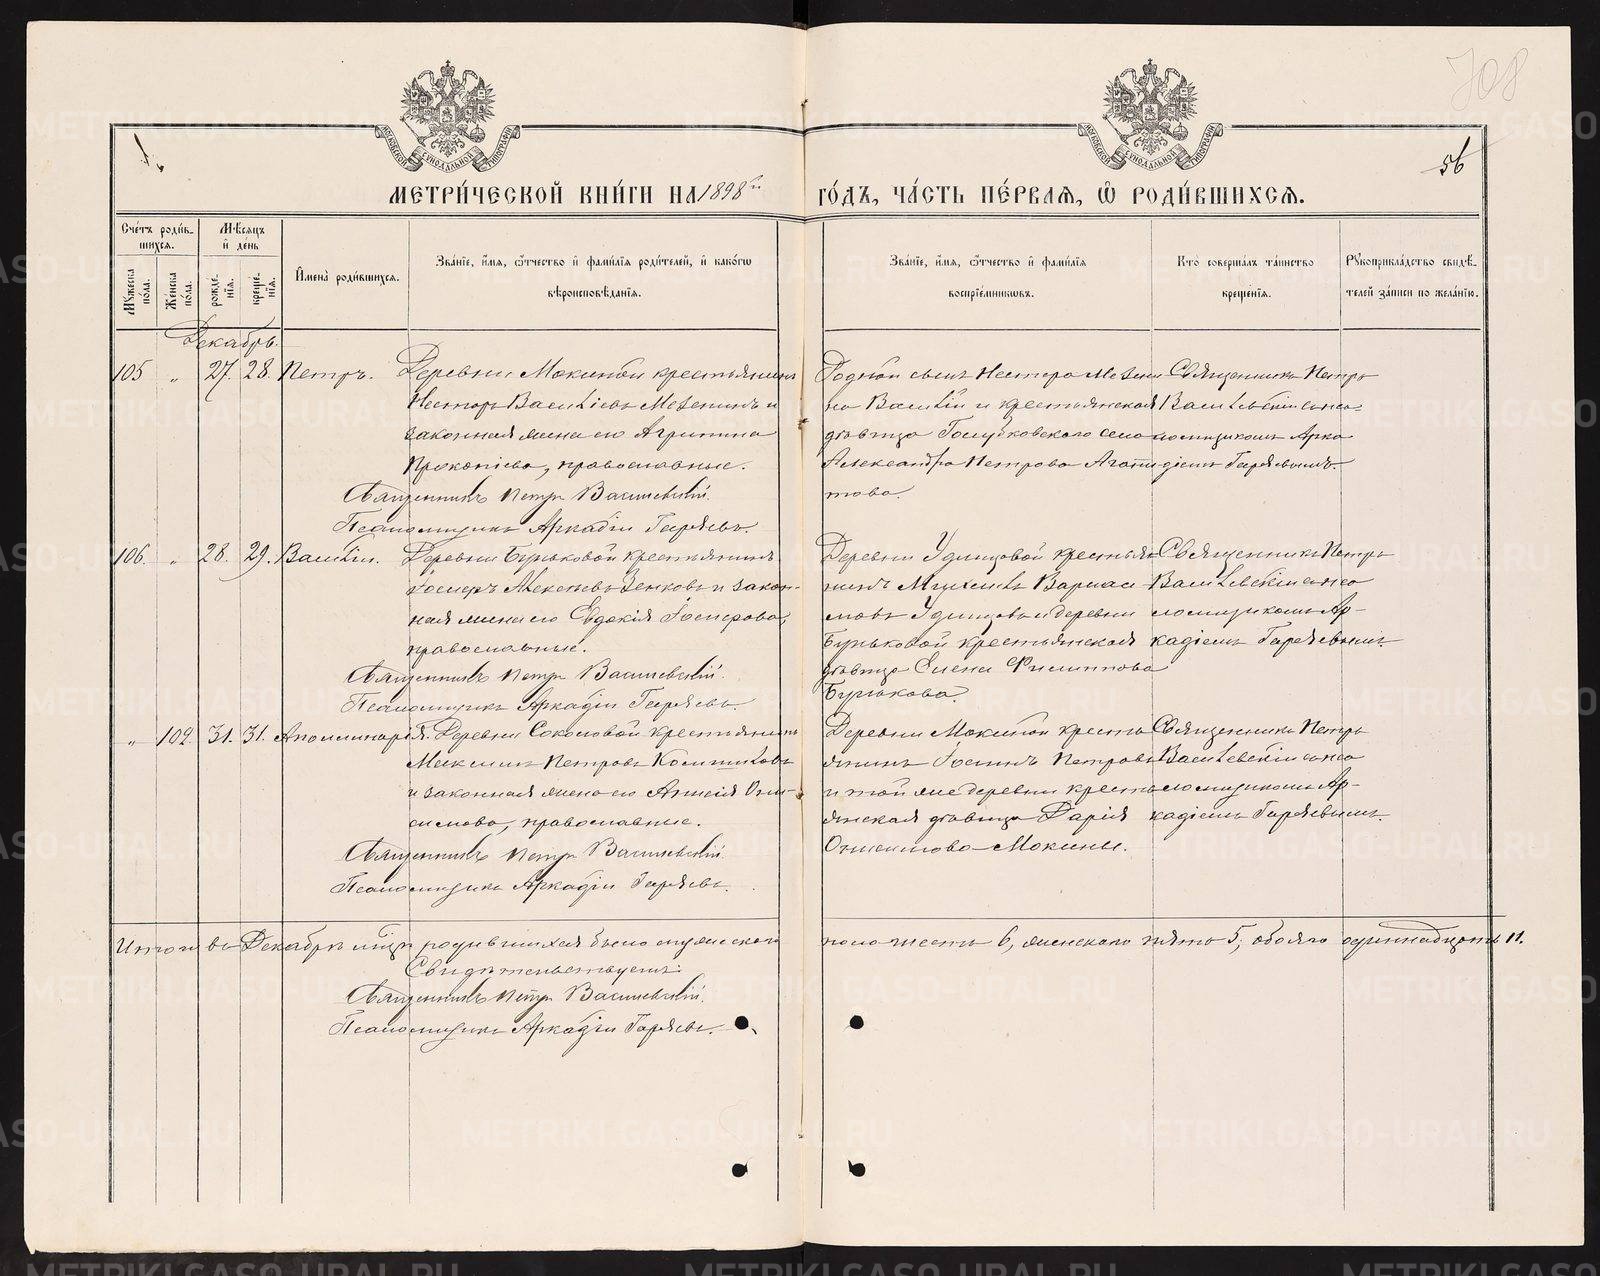 708
56
МЕТРИ́ЧЕСКОЙ КНИ́ГИ НА 1898й ГО́ДЪ, ЧА́СТЬ ПЕ́РВАЯ, Ѡ РОДИ́ВШИХСЯ.
Сче́тъ роди́в-
шихся.
Мꙋжеска по́ла.
Же́нска по́ла.
Мѣ́сяцъ и҆ де́нь
рожде-
нія.
креще-
нія.
И҆мена̀ роди́вшихся.
Зва́ніе, и҆́мя, ѻ҆́тчество и҆ фами́лія роди́телей, и҆ како́гѡ
вѣроисповѣ́данія.
Зва́ніе, и҆́мя, ѻ҆́тчество и҆ фами́лія
воспріе́мникѡвъ.
Кто̀ соверша́лъ та́инство
креще́нія.
Рꙋкоприкла́дство свидѣ́-
телей за́писи по жела́нію.
Декабрь.
105 „ 27. 28. Петръ.
Деревни Мокиной крестьянинъ
Несторъ Васильевъ Мезенинъ и
законная жена его Агрипина
Прокопіева, православные.
Священникъ Петръ Василевскій.
Псаломщикъ Аркадій Гаряевъ.
Родной сынъ Нестера Мезени
на Василій и крестьянская
дѣвица Голубковскаго села
Александра Петрова Агапи
това.
Священникъ Петръ
Василевскій съ пса-
ломщикомъ Арка
діемъ Гаряевымъ.
106. „ 28. 29. Василій.
Деревни Бунковой крестьянинъ
Алексѣевъ Зенковъ и закон-
ная жена его Евдокія
православные.
Священникъ Петръ Василевскій.
Псаломщикъ Аркадій Гаряевъ.
Деревни Удинцовой крестья
нинъ Варлаа
мовъ Удинцовъ и деревни
крестьянская
дѣвица Елена Филиппова
Священникъ Петръ
Василевскій съ пса
ломщикомъ Ар-
кадіемъ Гаряевымъ.
„ 102. 31. 31. Аполлинарія.
Деревни Соколовой крестьянинъ
Максимъ Петровъ
и законная жена его Анисія Они-
симова, православные.
Священникъ Петръ Василевскій
Псаломщикъ Аркадій Гаряевъ.
Деревни Мокиной кресть
янинъ Петровъ
и той же деревни кресть
янская дѣвица Дарія
Онисимова Мокины.
Священникъ Петръ
Василевскій съ пса
ломщикомъ Ар-
кадіемъ Гаряевымъ.
Итого въ Декабрѣ мѣсцѣ родившихся было мужескаго пола шесть 6, женскаго пять 5, обоего одиннадцать 11.
Свидѣтельствуемъ:
Священникъ Петръ Василевскій.
Псаломщикъ Аркадій Гаряевъ.
METRIKI.GASO-URAL.RU